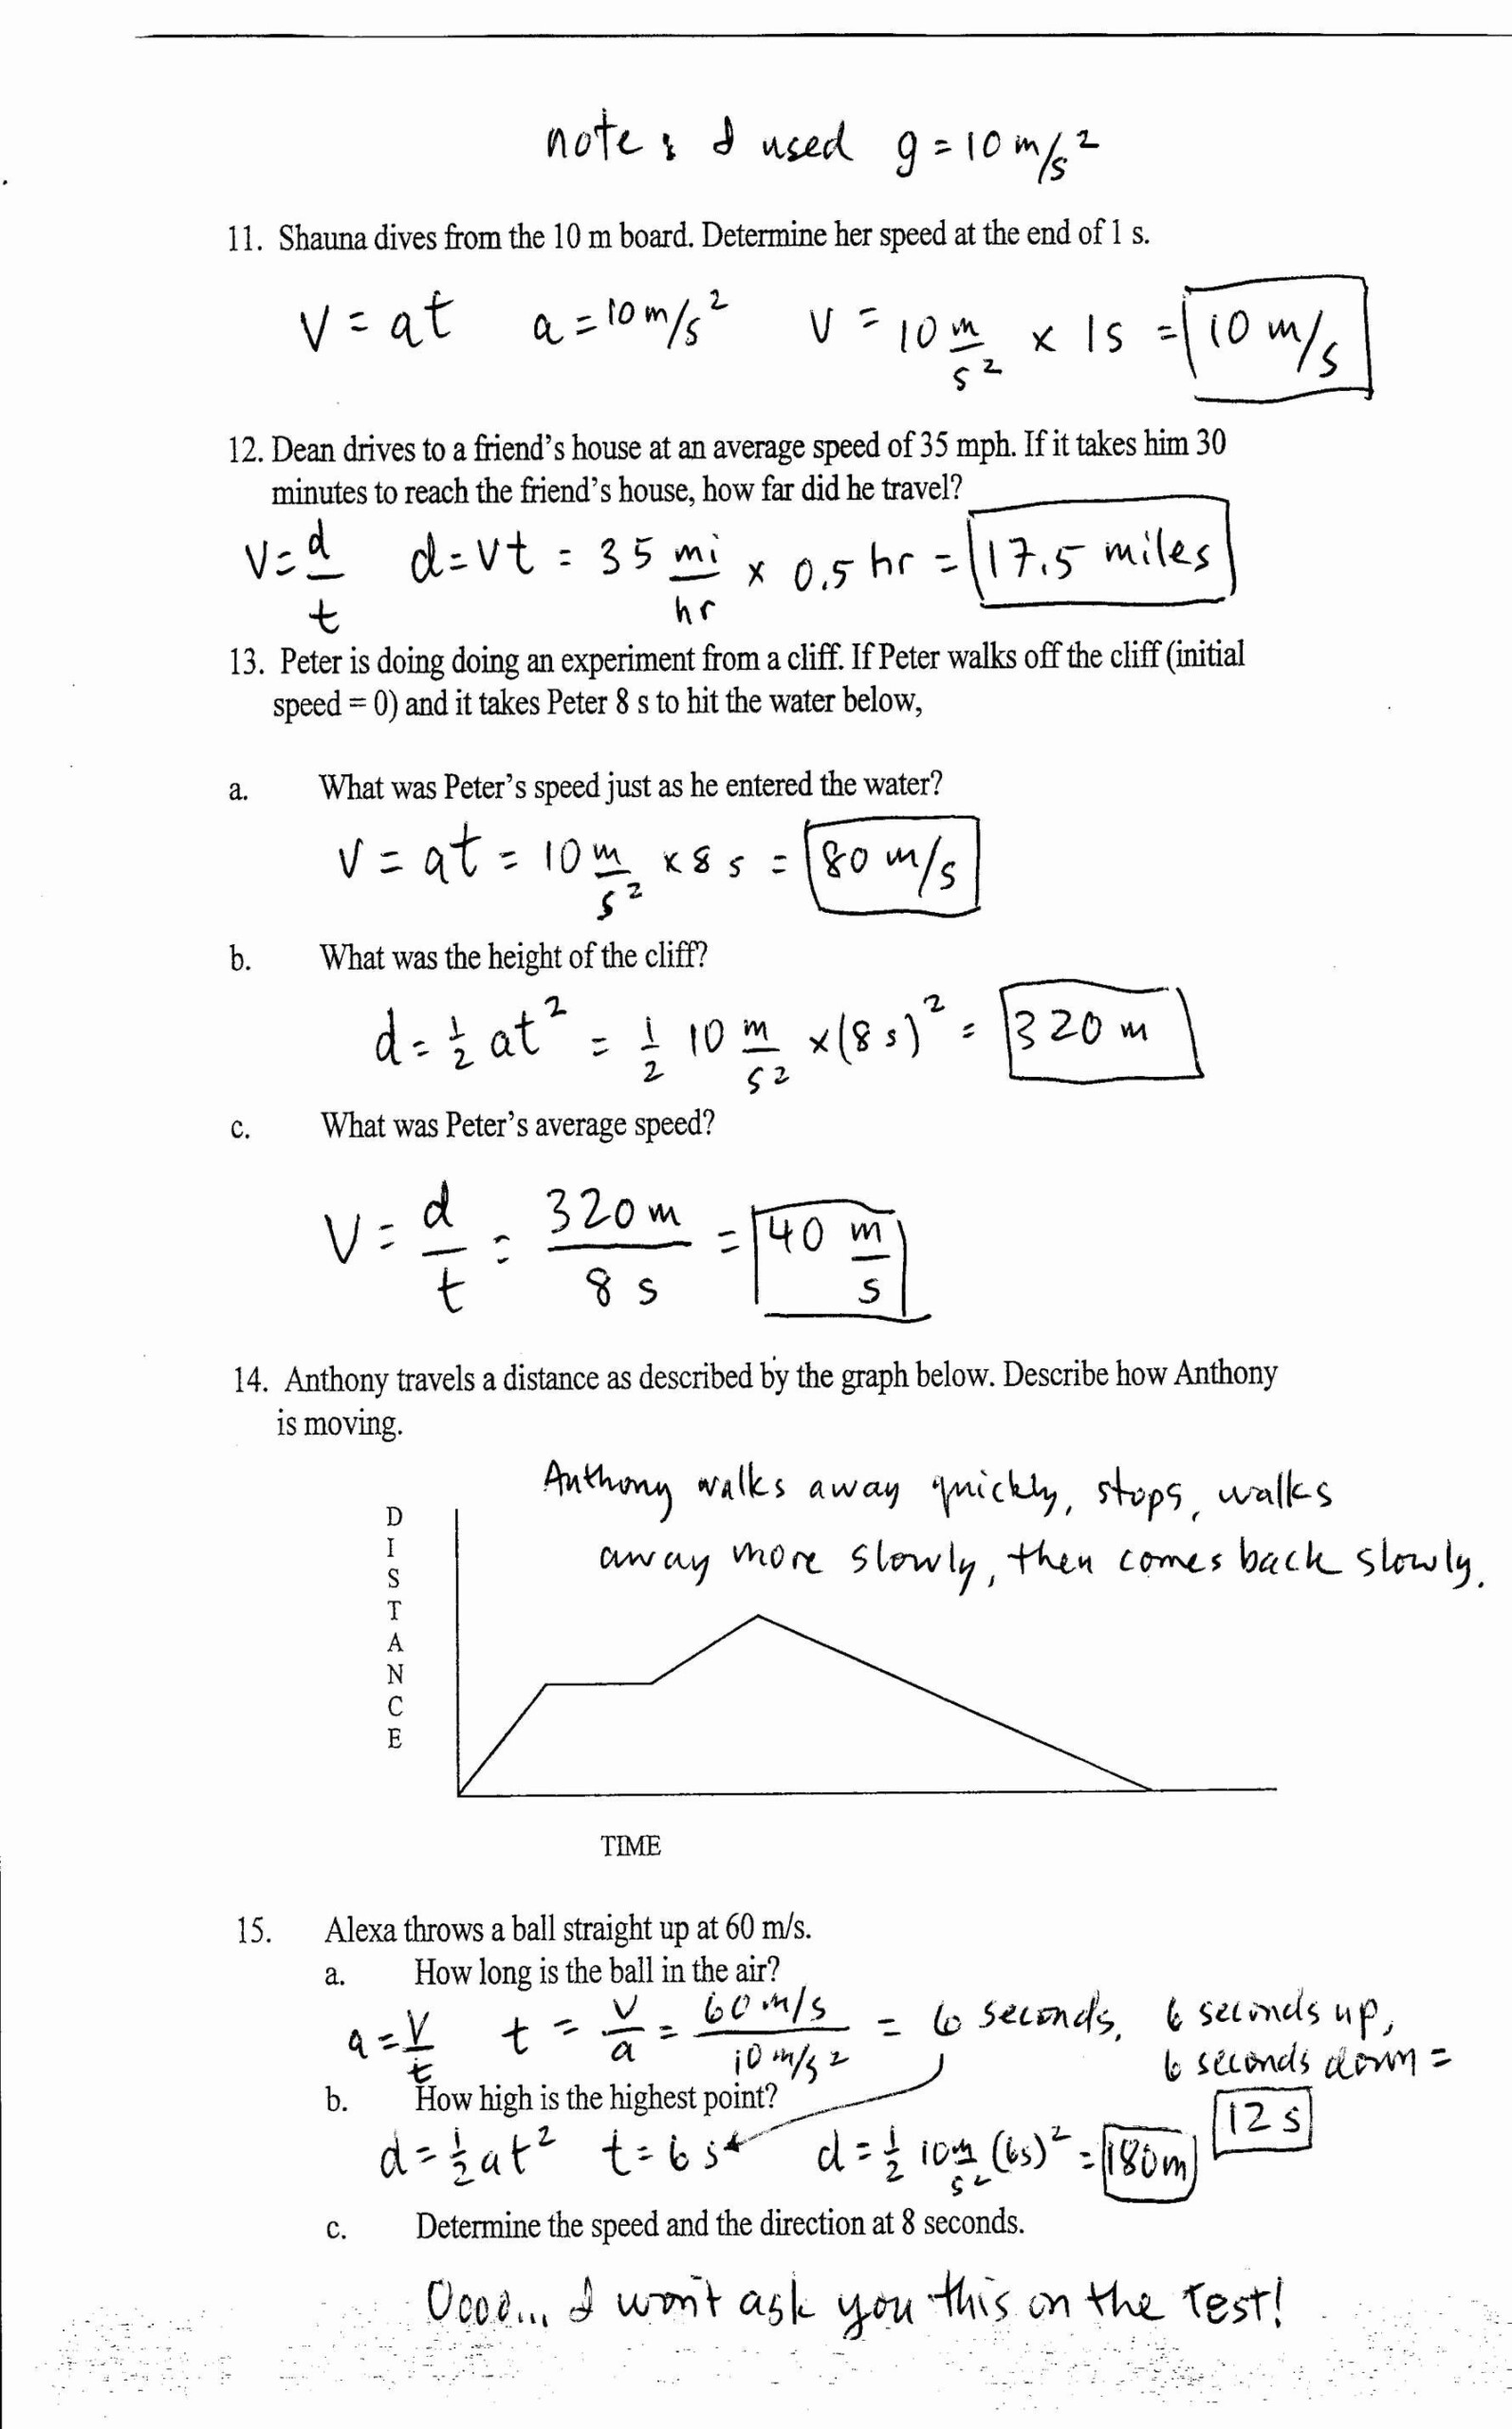 note: I used g = 10 m/s²
11. Shauna dives from the 10 m board. Determine her speed at the end of 1 s.
V = at a = 10 m/s² V = 10 m/s² × 1s = 10 m/s
12. Dean drives to a friend's house at an average speed of 35 mph. If it takes him 30
minutes to reach the friend's house, how far did he travel?
V = d/t d = vt = 35 mi/hr × 0.5 hr = 17.5 miles
13. Peter is doing doing an experiment from a cliff. If Peter walks off the cliff (initial
speed = 0) and it takes Peter 8 s to hit the water below,
a. What was Peter's speed just as he entered the water?
V = at = 10 m/s² × 8 s = 80 m/s
b. What was the height of the cliff?
d = ½ at² = ½ 10 m/s² × (8 s)² = 320 m
c. What was Peter's average speed?
V = d/t = 320 m / 8 s = 40 m/s
14. Anthony travels a distance as described by the graph below. Describe how Anthony
is moving.
Anthony walks away quickly, stops, walks
away more slowly, then comes back slowly.
DISTANCE
TIME
15. Alexa throws a ball straight up at 60 m/s.
a. How long is the ball in the air?
a = V/t t = V/a = 60 m/s / 10 m/s² = 6 seconds. 6 seconds up,
6 seconds down =
12 s
b. How high is the highest point?
d = ½ at² t = 6 s d = ½ 10 m/s² (6s)² = 180m
c. Determine the speed and the direction at 8 seconds.
Oooo... I won't ask you this on the test!